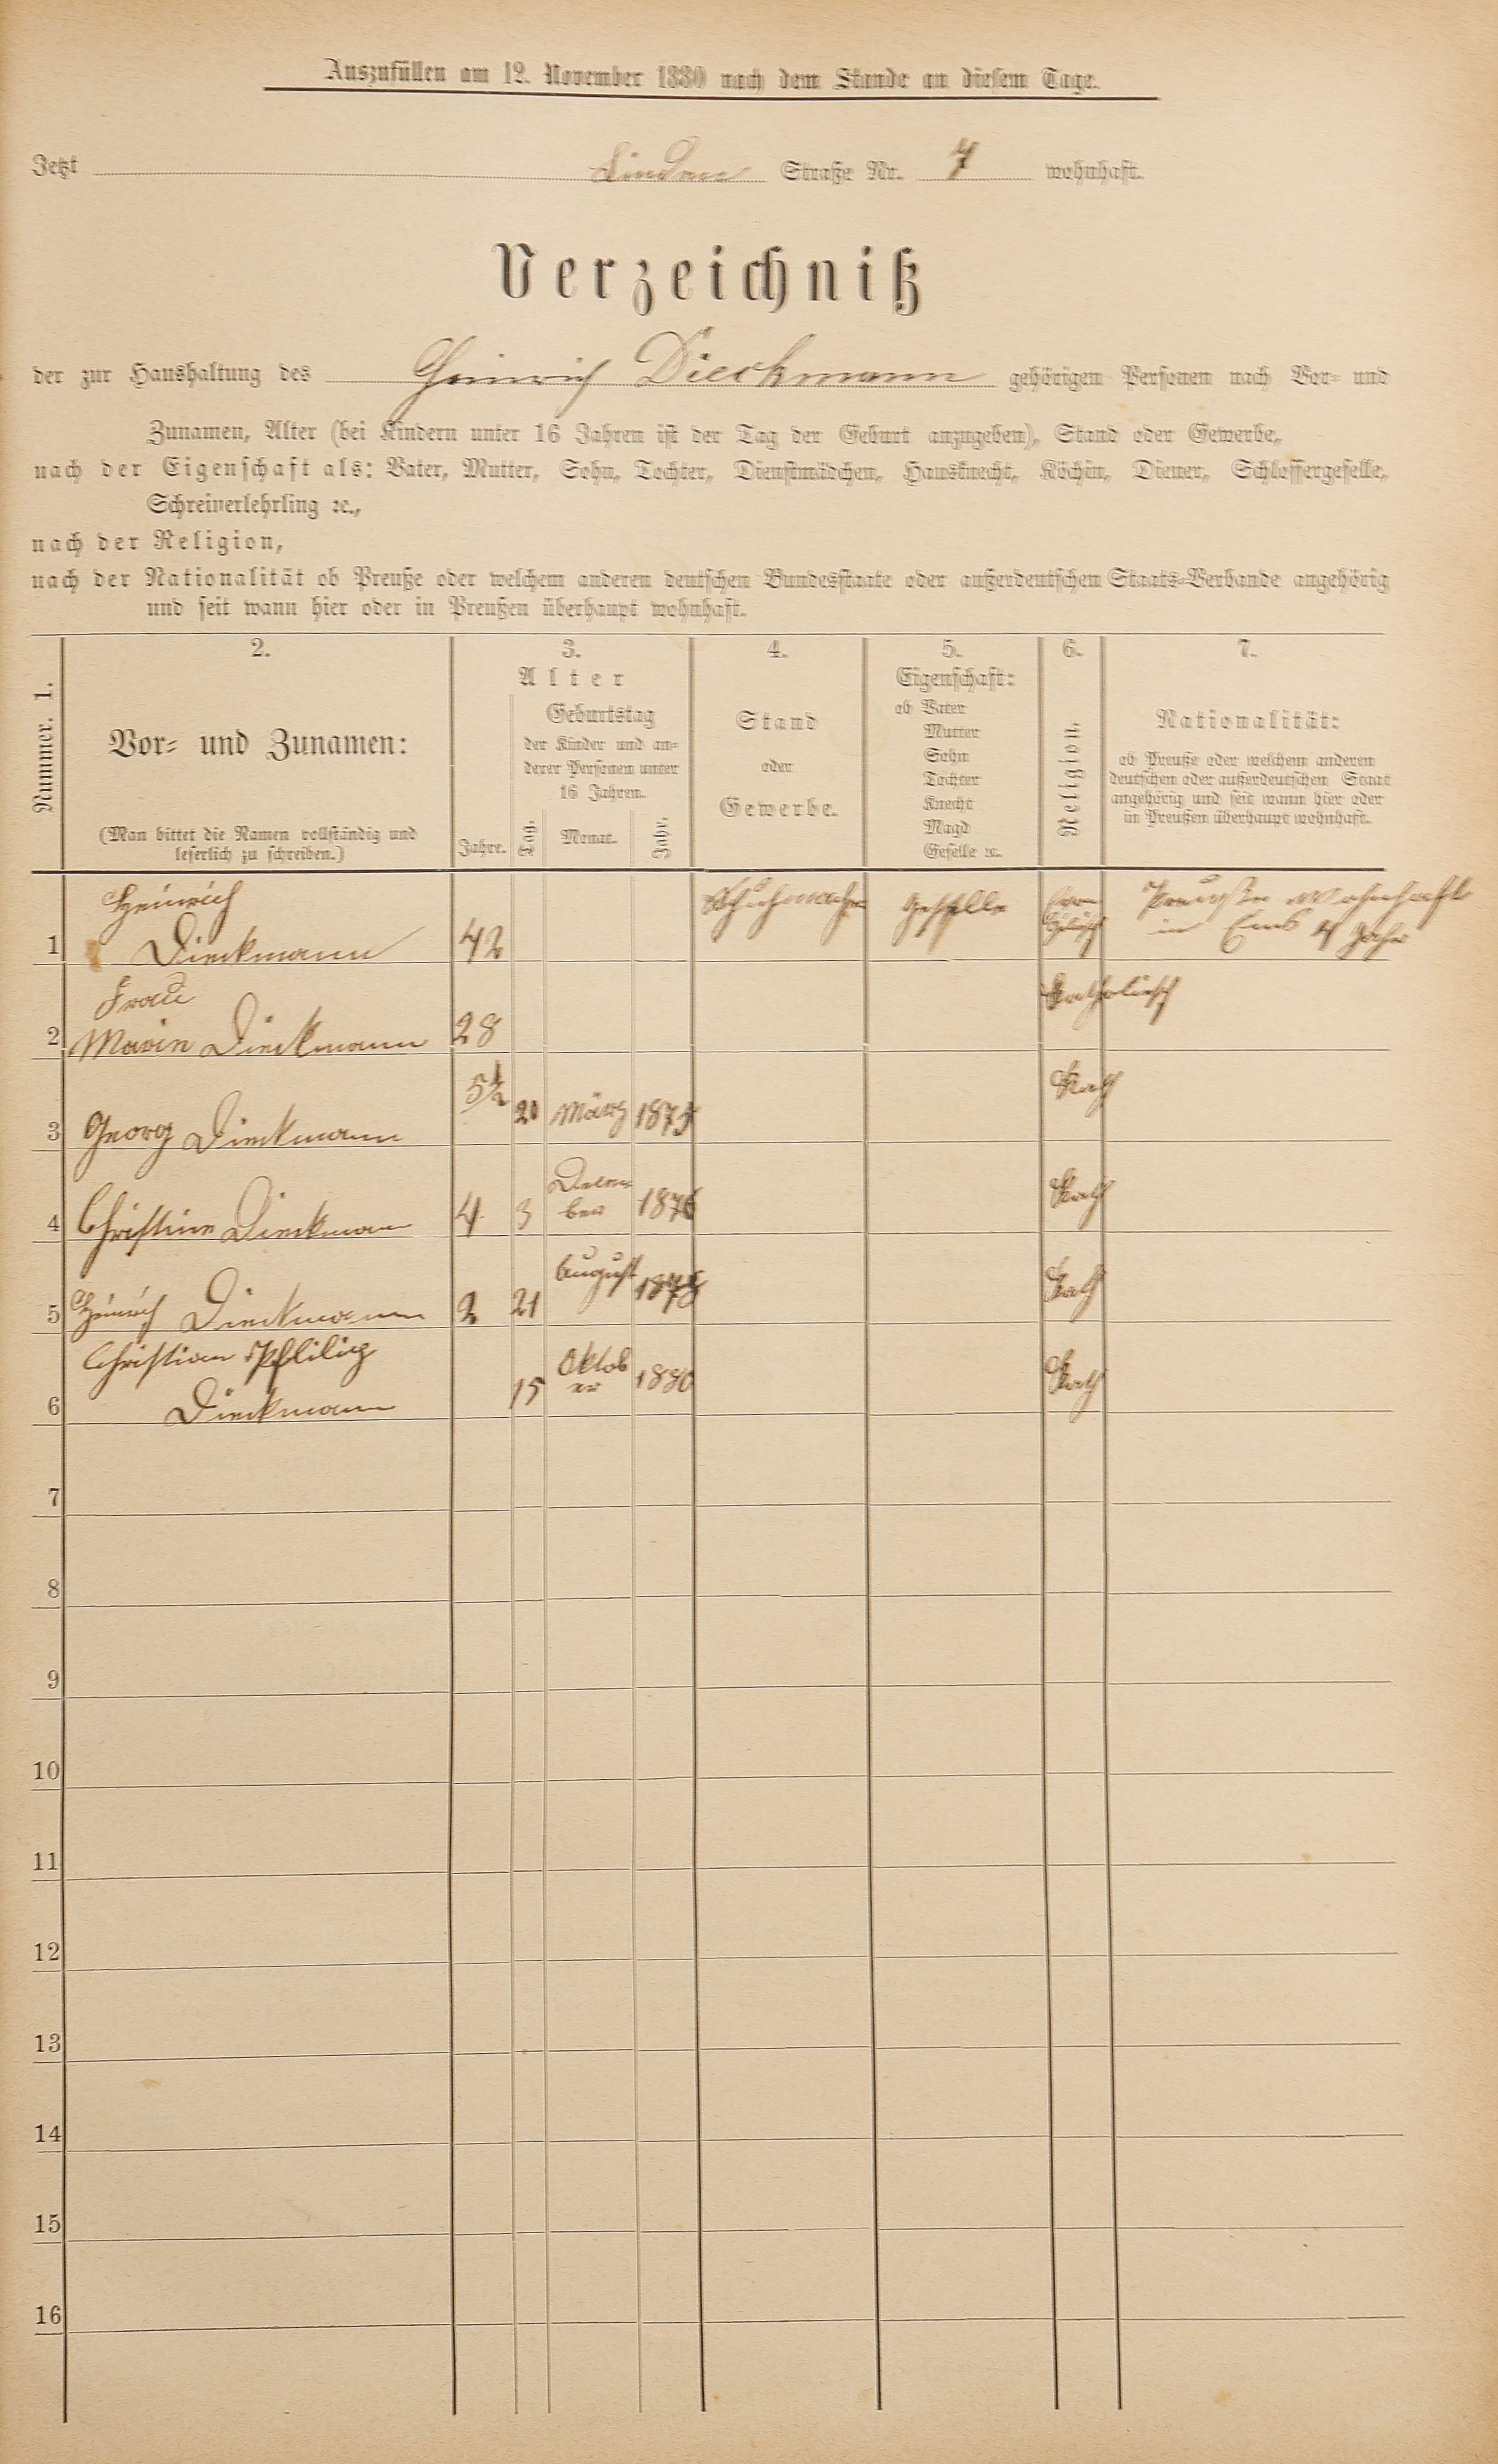 Auszufüllen am 12. November 1880 nach dem Stande an diesem Tage.
Jetzt Lindau Straße Nr. 7 wohnhaft.
Verzeichniß
der zur Haushaltung des Heinrich Dieckmann gehörigen Personen nach Vor- und
Zunamen, Alter (bei Kindern unter 16 Jahren ist der Tag der Geburt anzugeben), Stand oder Gewerbe,
nach der Eigenschaft als: Vater, Mutter, Sohn, Tochter, Dienstmädchen, Hausknecht, Köchin, Diener, Schlossergeselle,
Schreinerlehrling ꝛc.,
nach der Religion,
nach der Nationalität ob Preuße oder welchem anderen deutschen Bundesstaate oder außerdeutschem Staats-Verbande angehörig
und seit wann hier oder in Preußen überhaupt wohnhaft.
Nummer. 1.
2.
Vor- und Zunamen:
(Man bittet die Namen vollständig und
leserlich zu schreiben.)
3.
Alter
Jahre.
Geburtstag
der Kinder und an-
derer Personen unter
16 Jahren.
Tag. Monat. Jahr.
4.
Stand
oder
Gewerbe.
5.
Eigenschaft:
ob Vater
Mutter
Sohn
Tochter
Knecht
Magd
Geselle ꝛc.
6.
Religion.
7.
Nationalität:
ob Preuße oder welchem anderen
deutschen oder außerdeutschen Staat
angehörig und seit wann hier oder
in Preußen überhaupt wohnhaft.
Heinrich Schuhmacher Geselle Evangelisch Preußen Wohnhaft
1 Dieckmann 42 in Ems 4 Jahr
Frau Katholisch
2 Marie Dieckmann 28
3 Georg Dieckmann 5½ 20 März 1875 Kath
4 Christine Dieckmann 4 3 Dezember 1876 Kath
5 Heinrich Dieckmann 2 21 August 1878 Kath
Christian
6 Dieckmann 15 Oktober 1880 Kath
7
8
9
10
11
12
13
14
15
16